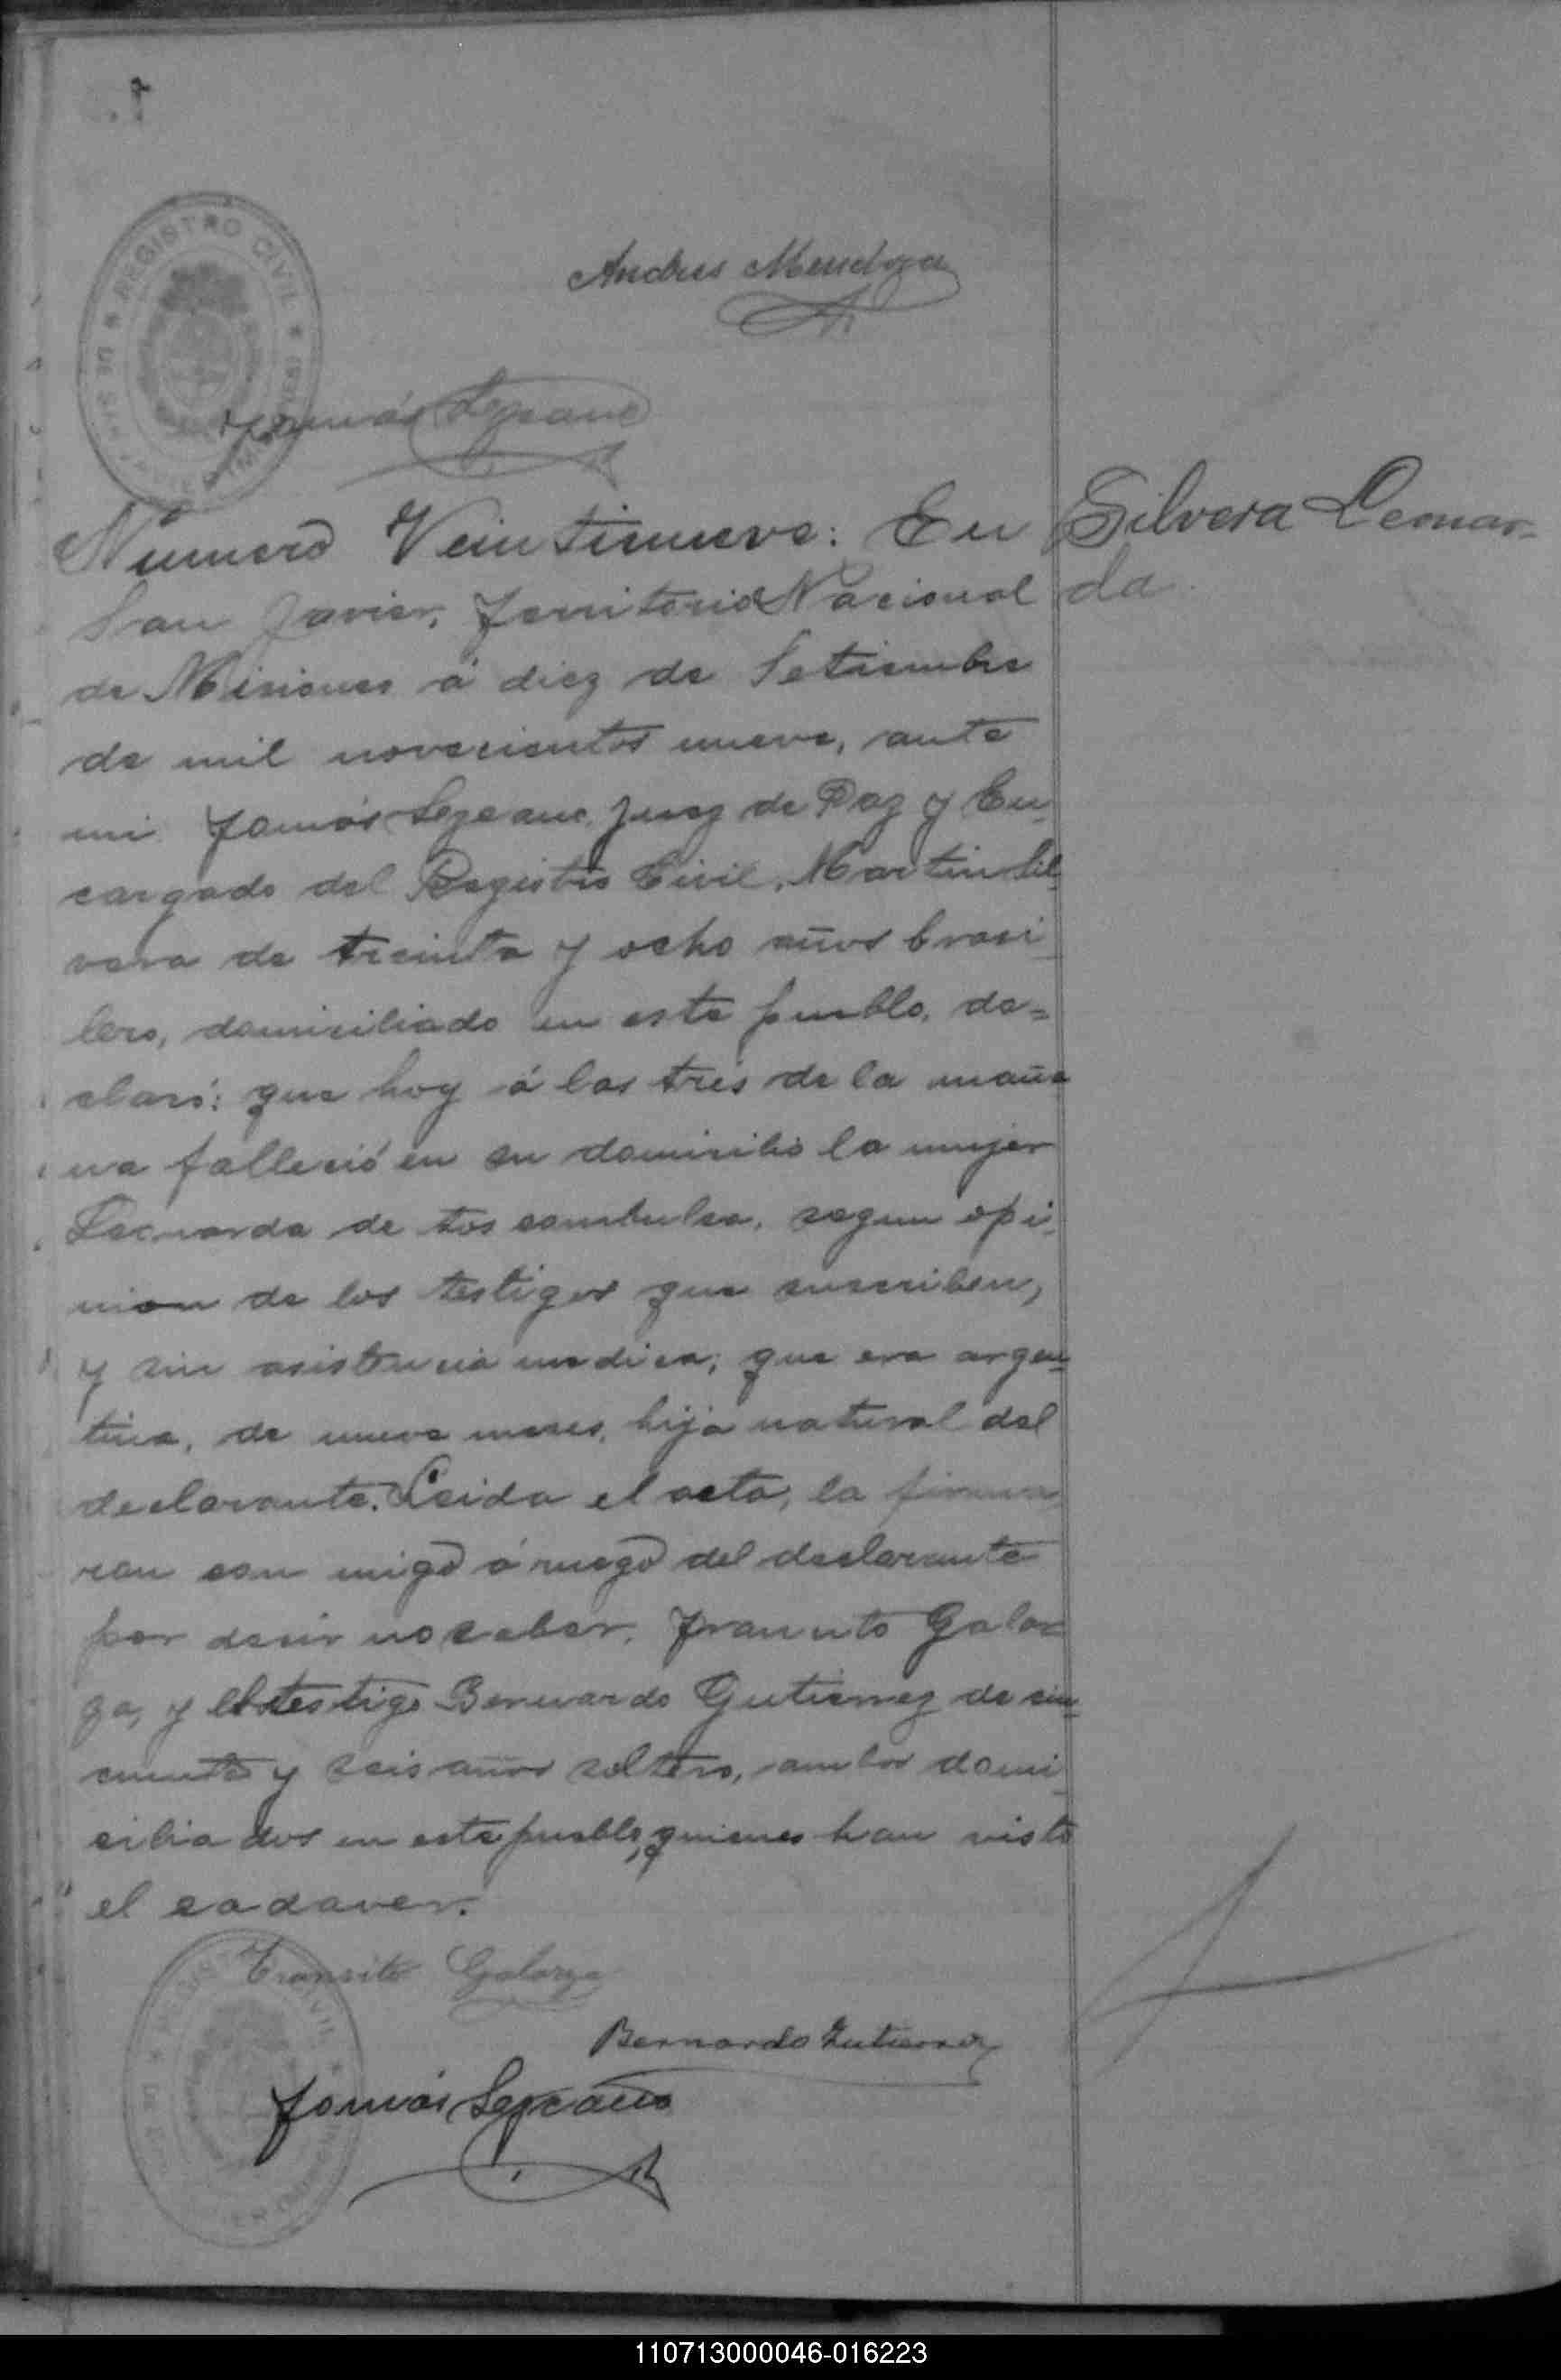 REGISTRO CIVIL
Andres Mendoza
Tomás Lezcano
Número Veintinueve: En
San Javier, Territorio Nacional
de Misiones á diez de Setiembre
de mil novecientos nueve, ante
mi Tomás Lezcano, Juez de Paz y En-
cargado del Registro Civil, Martin Sil-
vera de treinta y ocho años brasi-
lero, domiciliado en este pueblo, de=
claró: que hoy á las tres de la maña
na falleció en su domicilio la mujer
Leonarda de tos convulsa, segun opi-
nion de los testigos que suscriben,
y sin asistencia medica; que era argen-
tina, de nueve meses, hija natural del
declarante. Leida el acta, la firma
ron con migo á ruego del declarante
por decir no saber, Trancito Galar
za, y el testigo Bernardo Gutierrez de cin-
cuenta y seis años soltero, ambos domi-
ciliados en este pueblo, quienes han visto
el cadaver.
Silvera Leonar-
da
Transito Galarza
Bernardo Gutierrez
Tomás Lezcano
110713000046-016223